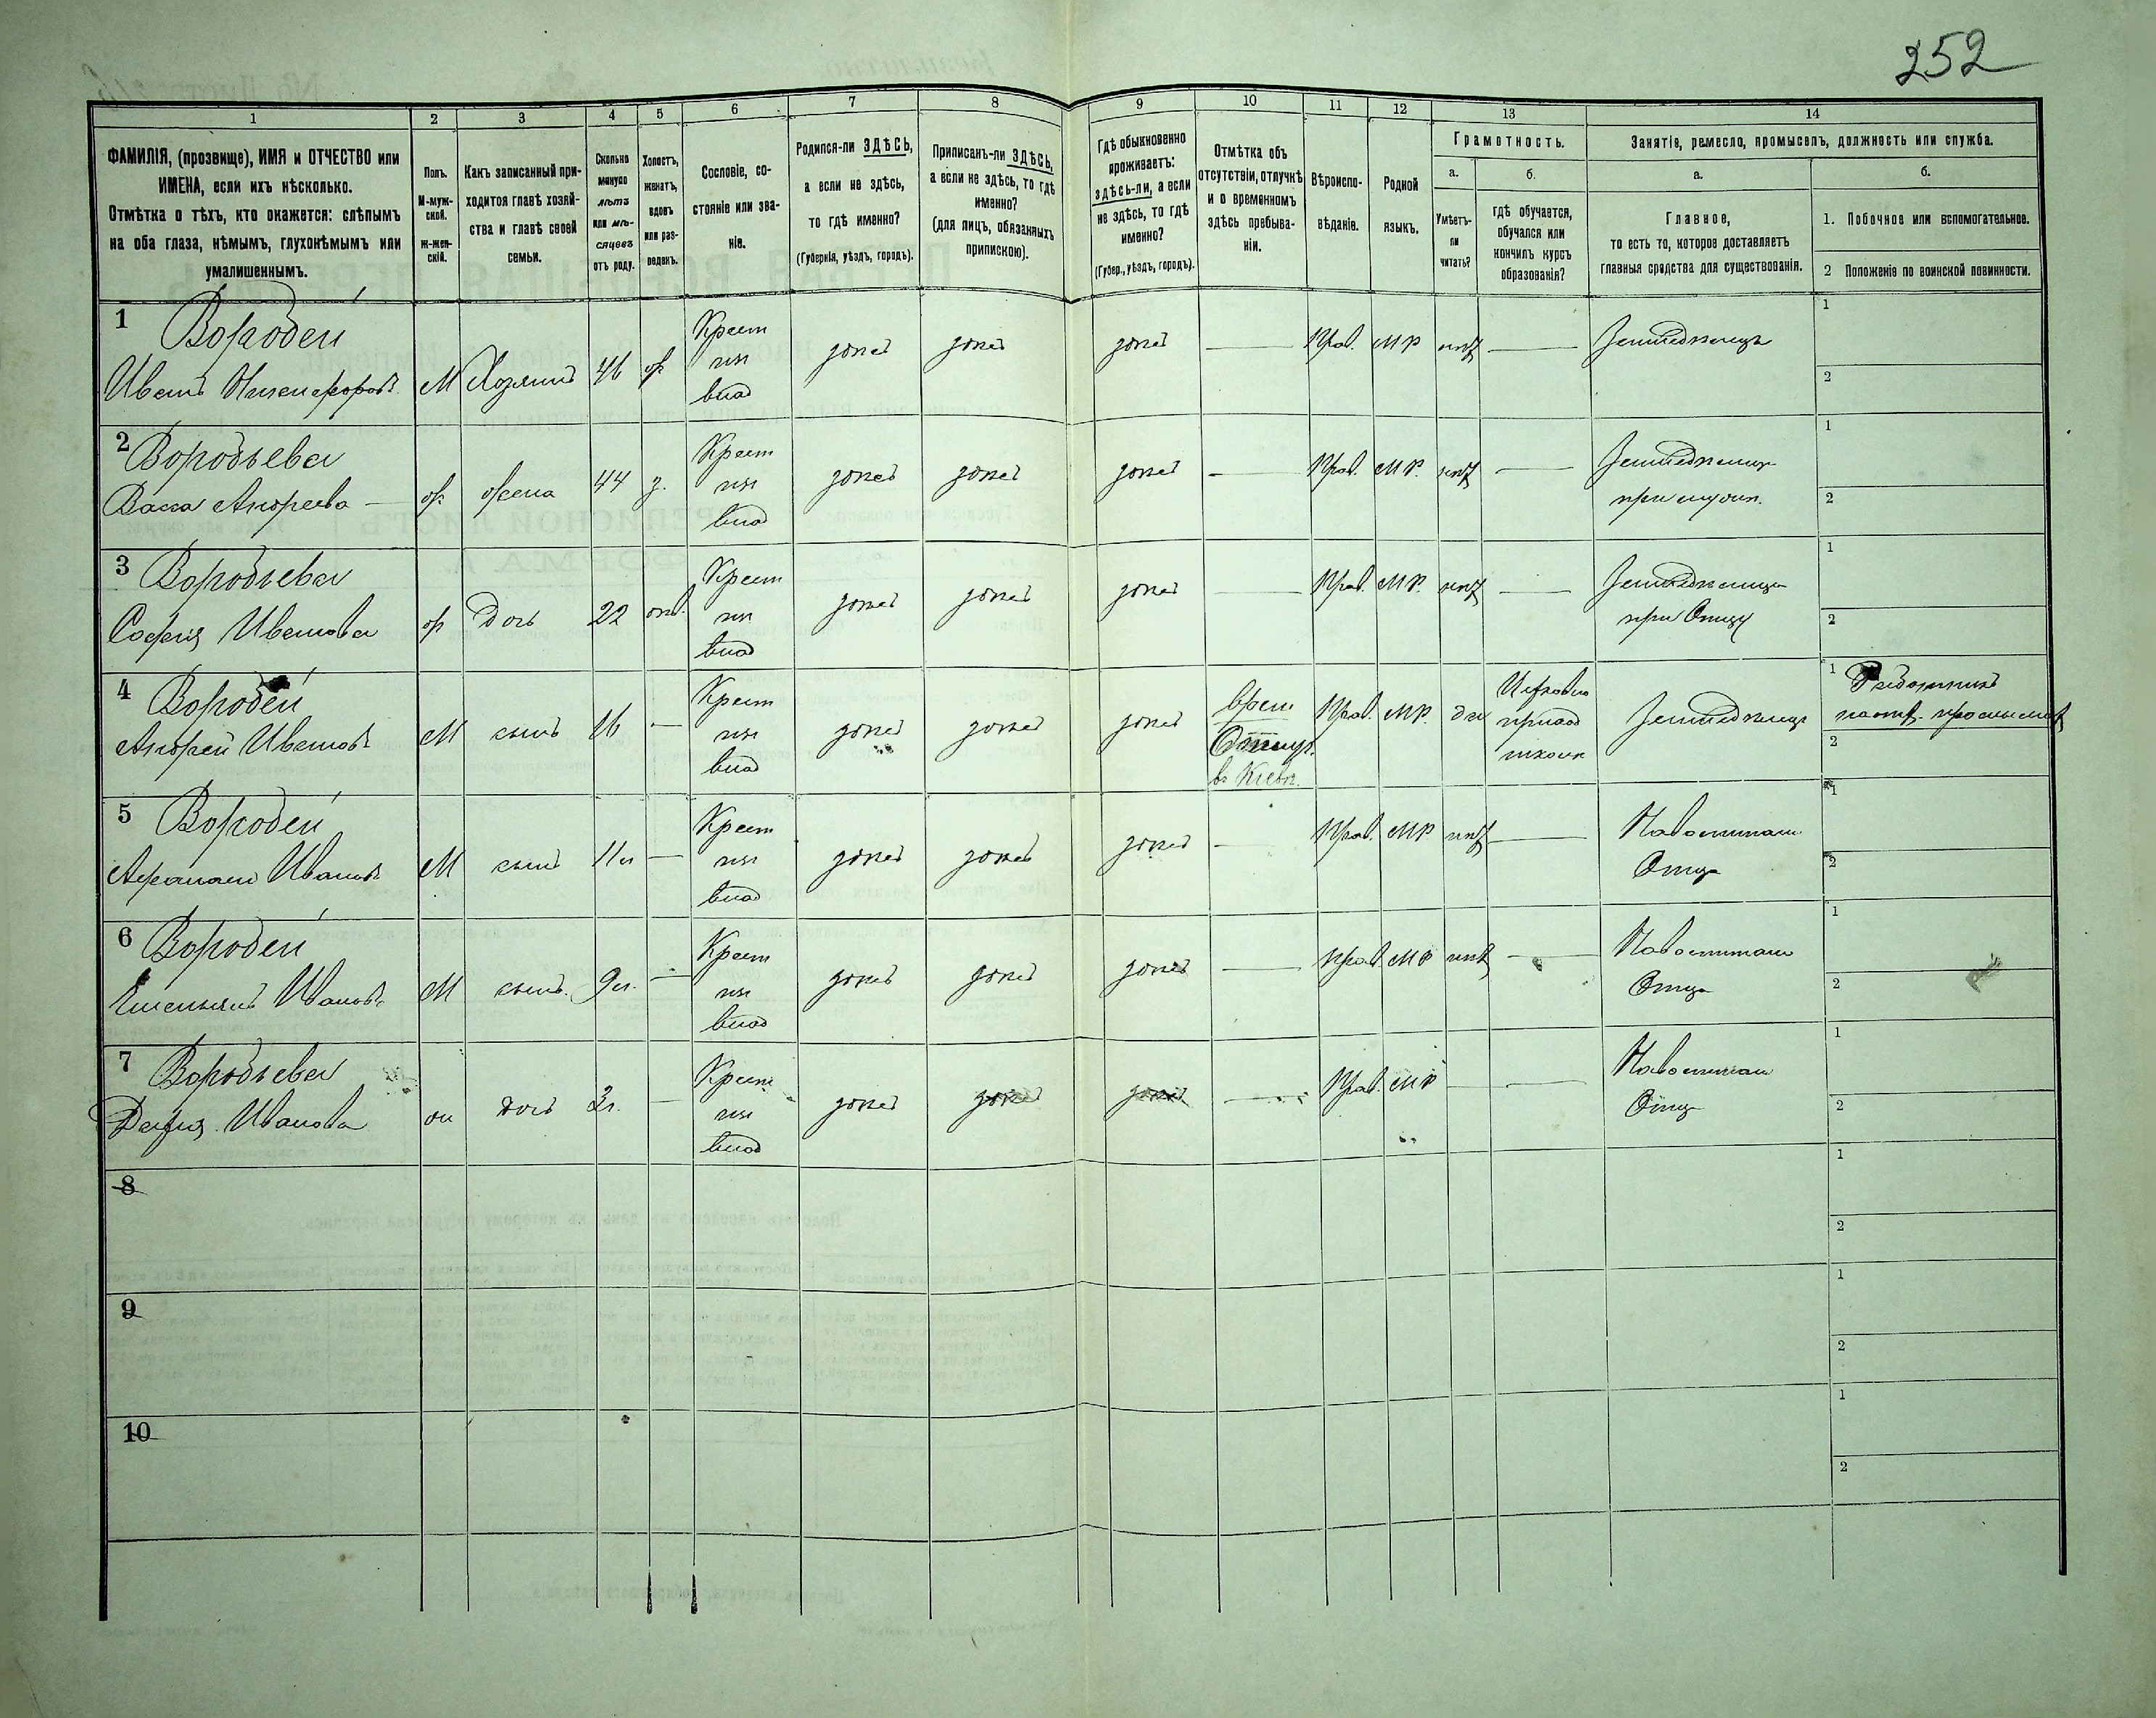 252
1 2 3 4 5 6 7 8 9 10 11 12 13 14
ФАМИЛІЯ, (прозвище), ИМЯ и ОТЧЕСТВО или
ИМЕНА, если ихъ нѣсколько.
Отмѣтка о тѣхъ, кто окажется: слѣпымъ
на оба глаза, нѣмымъ, глухонѣмымъ или
умалишеннымъ.
Полъ.
М-муж-
ской.
Ж-жен-
скій.
Какъ записанный при-
ходится главѣ хозяй-
ства и главѣ своей
семьи.
Сколько
минуло
лѣтъ
или мѣ-
сяцевъ
отъ роду.
Холостъ,
женатъ,
вдовъ
или раз-
веденъ.
Сословіе, со-
стояніе или зва-
ніе.
Родился-ли ЗДѢСЬ,
а если не здѣсь,
то гдѣ именно?
(Губернія, уѣздъ, городъ).
Приписанъ-ли ЗДѢСЬ,
а если не здѣсь, то гдѣ
именно?
(для лицъ, обязанныхъ
припискою).
Гдѣ обыкновенно
проживаетъ:
здѣсь-ли, а если
не здѣсь, то гдѣ
именно?
(Губер., уѣздъ, городъ).
Отмѣтка объ
отсутствіи, отлучкѣ
и о временномъ
здѣсь пребыва-
ніи.
Вѣроиспо-
вѣданіе.
Родной
языкъ.
Грамотность.
а.
Умѣетъ-
ли
читать?
б.
гдѣ обучается,
обучался или
кончилъ курсъ
образованія?
Занятіе, ремесло, промыселъ, должность или служба.
а.
Главное,
то есть то, которое доставляетъ
главныя средства для существованія.
б.
1. Побочное или вспомогательное.
2 Положеніе по воинской повинности.
1 Воробей
Иванъ Никифоровъ М Хозяинъ 46 ж Крест
изъ
влад здѣсь здѣсь здѣсь — Прав. МР нѣт — Земледѣлецъ
1
2
2 Воробьева
Васса Андреева ж жена 44 з. Крест
изъ
влад здѣсь здѣсь здѣсь — Прав. МР. нѣт — Земледѣлица
при мужѣ.
1
2
3 Воробьева
Софія Иванова ж дочь 22 Крест
изъ
влад здѣсь здѣсь здѣсь — Прав. МР. нѣт — Земледѣлица
при Отцѣ
1
2
4 Воробей
Андрей Ивановъ М сынъ 16 — Крест
изъ
влад здѣсь здѣсь здѣсь врем
Отлуч.
въ Кіевѣ. Прав. МР. да Церковно
приход
школа Земледѣлецъ
1 Работникъ
2
5 Воробей
Афанасій Ивановъ М сынъ 11 л — Крест
изъ
влад здѣсь здѣсь здѣсь — Прав. МР нѣт — На воспитаніи
Отца
1
2
6 Воробей
Емельянъ Ивановъ М сынъ. 9 л. — Крест
изъ
влад здѣсь здѣсь здѣсь — Прав МР нѣт — На воспитаніи
Отца
1
2
7 Воробьева
Дарія Иванова ж дочь 3 г. — Крест
изъ
влад здѣсь здѣсь здѣсь — Прав. МР — — На воспитаніи
Отца
1
2
8
1
2
9
1
2
10
1
2